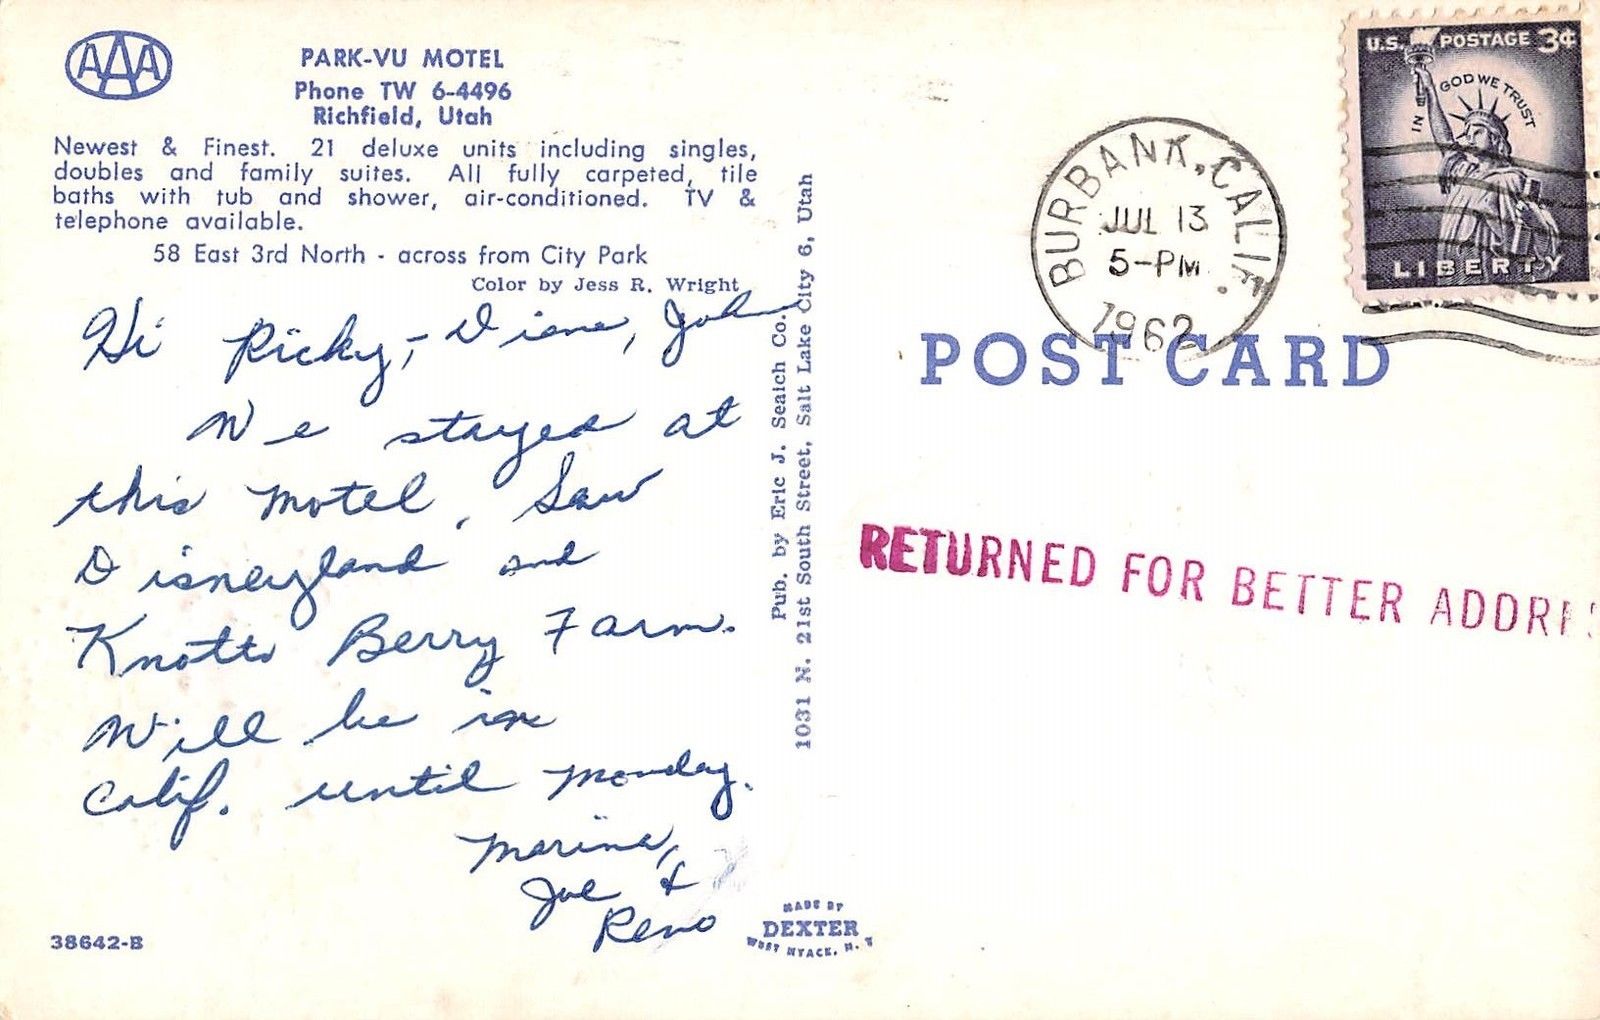 AAA
PARK-VU MOTEL
Phone TW 6-4496
Richfield, Utah
Newest & Finest. 21 deluxe units including singles,
doubles and family suites. All fully carpeted, tile
baths with tub and shower, air-conditioned. TV &
telephone available.
58 East 3rd North - across from City Park
Color by Jess R. Wright
Hi Ricky, - Diane, John
We stayed at
this motel. Saw
Disneyland and
Knotts Berry Farm.
Will be in
Calif. until Monday.
Marina,
Joe &
Reno
38642-B
Pub. by Eric J. Seaich Co.
1031 N. 21st South Street, Salt Lake City 6, Utah
MADE BY
DEXTER
WEST NYACK, N. Y.
BURBANK, CALIF.
JUL 13
5-PM
1962
U.S. POSTAGE 3¢
IN GOD WE TRUST
LIBERTY
POST CARD
RETURNED FOR BETTER ADDRES